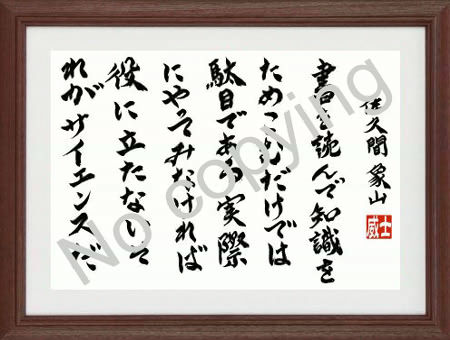 佐久間象山
書日を読んで知識を
ためこむだけでは
駄目である実際
にやってみなければ
役に立たないそ
れがサイエンスだ
威士
No copying